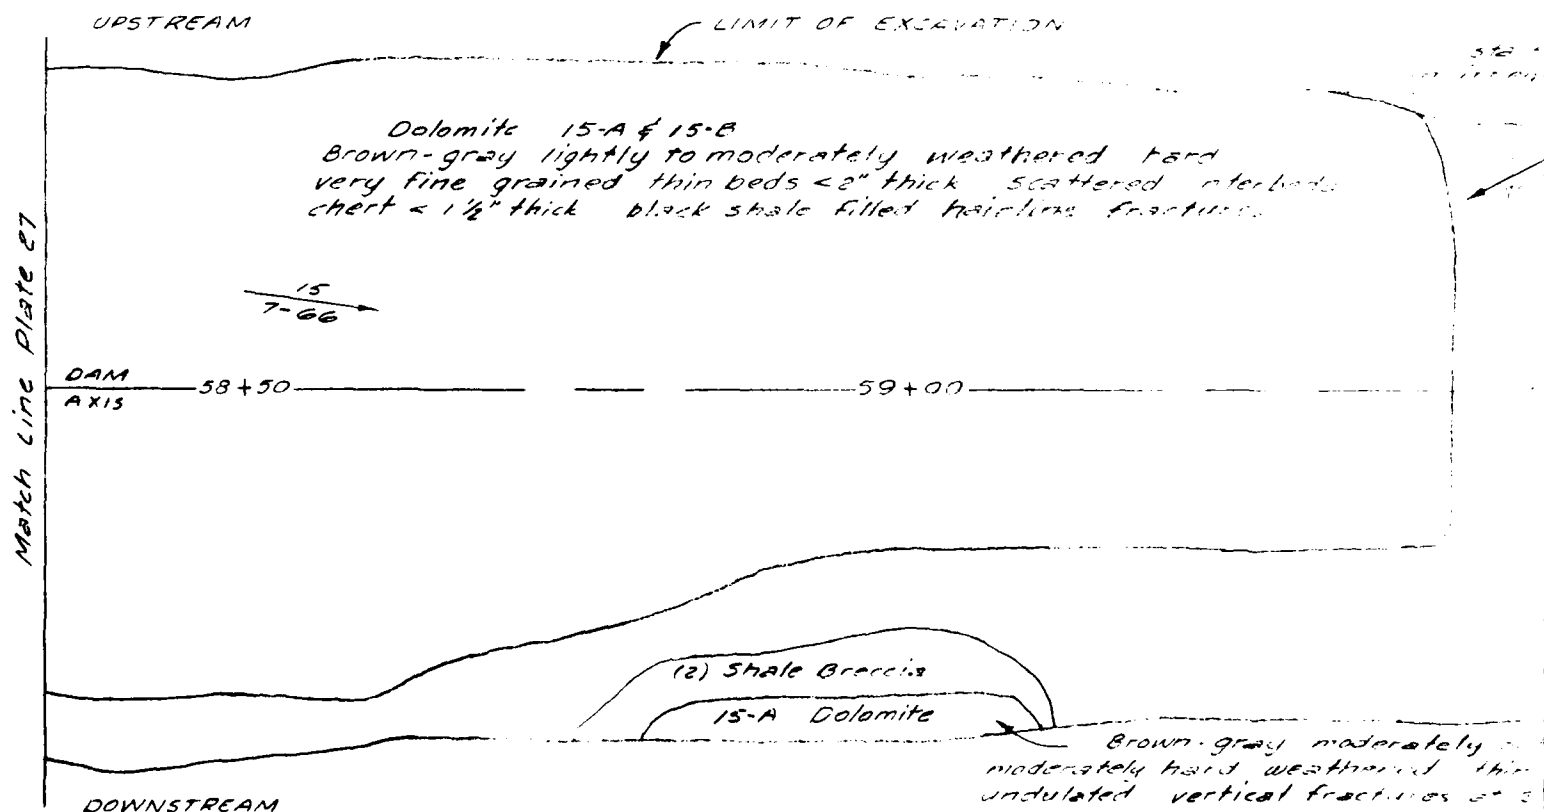 UPSTREAM
LIMIT OF EXCAVATION
sta
Dolomite 15-A & 15-B
Brown-gray lightly to moderately weathered hard
very fine grained thin beds <2" thick scattered
chert < 1½" thick black shale filled hairline fractures
15
7-66
Match Line Plate 27
DAM
AXIS
58+50
59+00
(2) Shale Breccia
15-A Dolomite
Brown-gray moderately
moderately hard weathered thin
undulated vertical fractures at
DOWNSTREAM